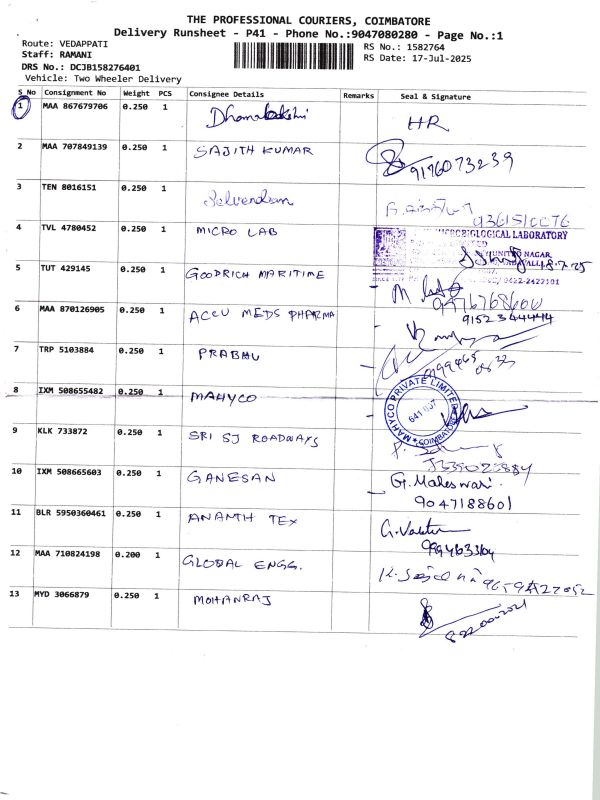 THE PROFESSIONAL COURIERS, COIMBATORE
Delivery Runsheet - P41 - Phone No.:9047080280 - Page No.:1
Route: VEDAPPATI
RS No.: 1582764
Staff: RAMANI
RS Date: 17-Jul-2025
DRS No.: DCJB158276401
Vehicle: Two Wheeler Delivery
S No Consignment No Weight PCS Consignee Details Remarks Seal & Signature
1 MAA 867679706 0.250 1 HR
2 MAA 707849139 0.250 1 SAJITH KUMAR 9176073239
3 TEN 8016151 0.250 1 Selvendran
4 TVL 4780452 0.250 1 MICRO LAB
MICROBIOLOGICAL LABORATORY
18.7.25
5 TUT 429145 0.250 1 GOODRICH MARITIME
6 MAA 870126905 0.250 1 ACCU MEDS PHARMA 9152344444
7 TRP 5103884 0.250 1 PRABHU
8 IXM 508655482 0.250 1 MAHYCO
MAHYCO PRIVATE LIMITED
COIMBATORE
9 KLK 733872 0.250 1 SRI SJ ROADWAYS
10 IXM 508665603 0.250 1 GANESAN G. Maheswari.
9047188601
11 BLR 5950360461 0.250 1 ANANTH TEX
12 MAA 710824198 0.200 1 GLOBAL ENGG.
13 MYD 3066879 0.250 1 MOHANRAJ